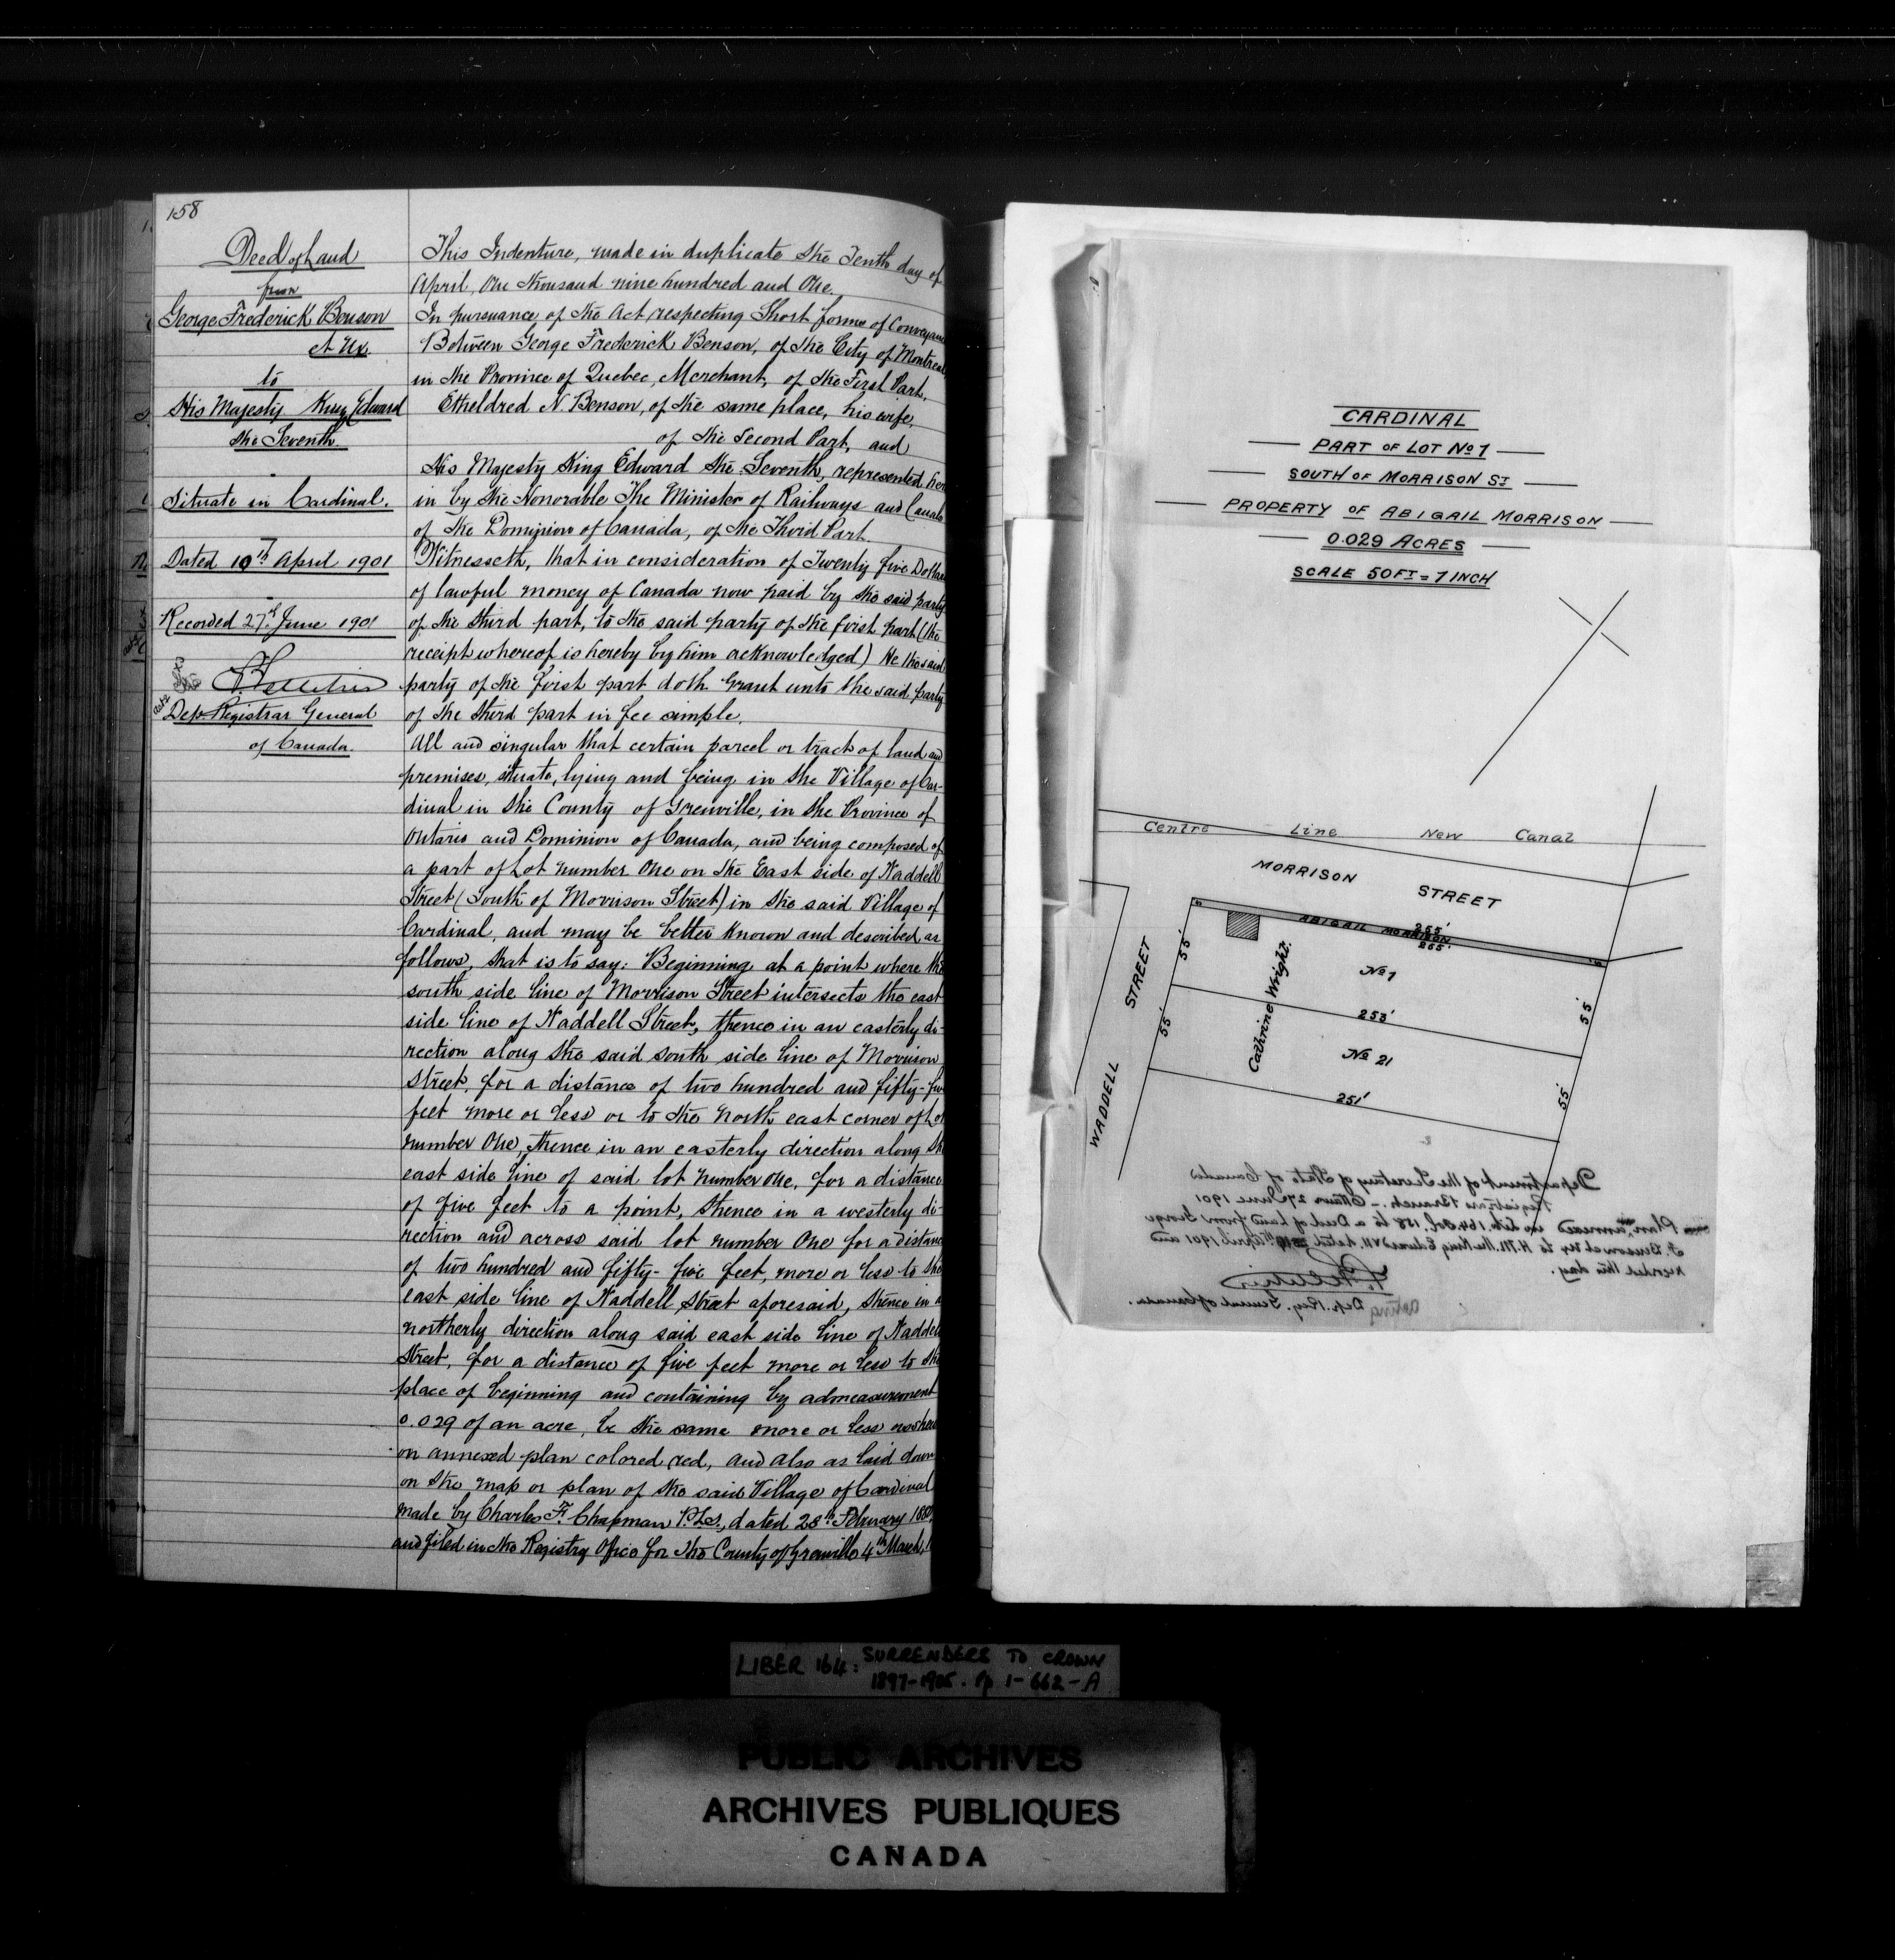 158
Deed of Land
from
George Frederick Benson
et Ux.
to
His Majesty King Edward
the Seventh
Situate in Cardinal.
Dated 10th April 1901
Recorded 27th June 1901
Dep Registrar General
of Canada.
This Indenture, made in duplicate the Tenth day of
April, One thousand nine hundred and One.
In pursuance of the Act respecting Short forms of Conveyance
Between George Frederick Benson, of the City of Montreal
in the Province of Quebec, Merchant, of the First Part,
Etheldred N. Benson, of the same place, his wife,
of the Second Part, and
His Majesty King Edward the Seventh, represented here
in by the Honorable The Minister of Railways and Canals
of the Dominion of Canada, of the Third Part.
Witnesseth, that in consideration of Twenty five Dollars
of lawful money of Canada now paid by the said party
of the third part, to the said party of the first part (the
receipt whereof is hereby by him acknowledged) He the said
party of the first part doth Grant unto the said party
of the third part in fee simple.
All and singular that certain parcel or tract of land and
premises, situate, lying and being in the Village of Car-
dinal in the County of Grenville, in the Province of
Ontario and Dominion of Canada, and being composed of
a part of Lot number One on the East side of Waddell
Street (South of Morrison Street) in the said Village of
Cardinal, and may be better known and described as
follows, that is to say: Beginning at a point where the
south side line of Morrison Street intersects the east
side line of Waddell Street, thence in an easterly di-
rection along the said south side line of Morrison
Street, for a distance of two hundred and fifty-five
feet more or less or to the north east corner of Lot
number One, thence in an easterly direction along the
east side line of said lot number one, for a distance
of five feet to a point, thence in a westerly di-
rection and across said lot number One for a distance
of two hundred and fifty-five feet, more or less to the
east side line of Waddell Street aforesaid, thence in a
northerly direction along said east side line of Waddell
Street, for a distance of five feet more or less to the
place of beginning and containing by admeasurement
0.029 of an acre, be the same more or less as shewn
on annexed plan colored red, and also as laid down
on the map or plan of the said Village of Cardinal
made by Charles F. Chapman P.L.S., dated 28th February
and filed in the Registry Office for the County of Grenville 4th March,
CARDINAL
PART OF LOT No 1
SOUTH OF MORRISON ST
PROPERTY OF ABIGAIL MORRISON
0.029 ACRES
SCALE 50 FT = 1 INCH
Centre Line New Canal
MORRISON STREET
ABIGAIL MORRISON
265'
265'
55'
No 1
STREET
Cathrine Wright.
253'
55'
55'
No 21
WADDELL
251'
55'
Department of the Secretary of State of Canada
Registrars Branch - Ottawa 27 June 1901
Plan annexed to Lib. 164 Fol. 158 to a Deed of Land from George
F. Benson et Ux to H.M. the King Edward VII. dated 10th April 1901 and
recorded this day.
Acting Dep. Reg. General of Canada.
LIBER 164: SURRENDERS TO CROWN
1897-1905. Pp 1-662-A
PUBLIC ARCHIVES
ARCHIVES PUBLIQUES
CANADA